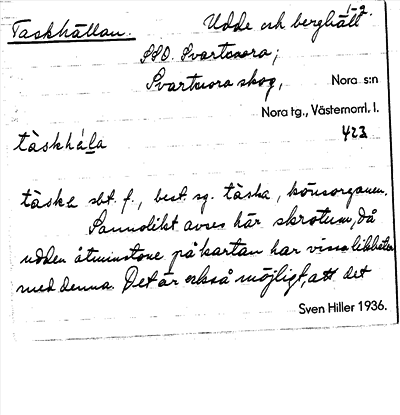 Taskhällan. Udde och berghäll 1-2.
SSO. Svartnora;
Svartnora skog, Nora s:n
Nora tg., Västernorrl. l.
tàskhála 423
tàska sbt. f., best. sg. tàska, könsorganen.
Sannolikt avses här skrotum, då
udden åtminstone på kartan har vissa likheter
med denna. Det är också möjligt, att det
Sven Hiller 1936.